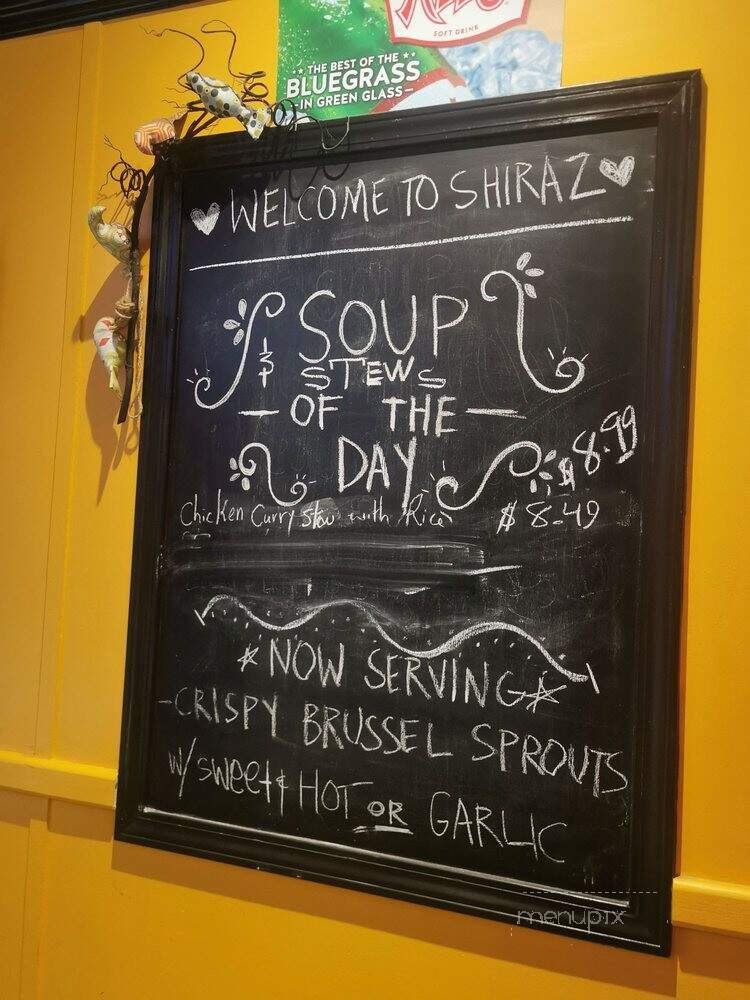 SOFT DRINK
THE BEST OF THE
BLUEGRASS
IN GREEN GLASS
WELCOME TO SHIRAZ
SOUP
& STEWS
— OF THE —
DAY
$8.99
Chicken Curry Stew with Rice $8.49
*NOW SERVING*
-CRISPY BRUSSEL SPROUTS
w/ sweet & HOT OR GARLIC
menupix